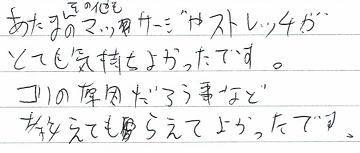 あたまの その他も マッサージやストレッチが
とても気持ちよかったです。
コリの原因だろう事など
教えてもらえてよかったです、